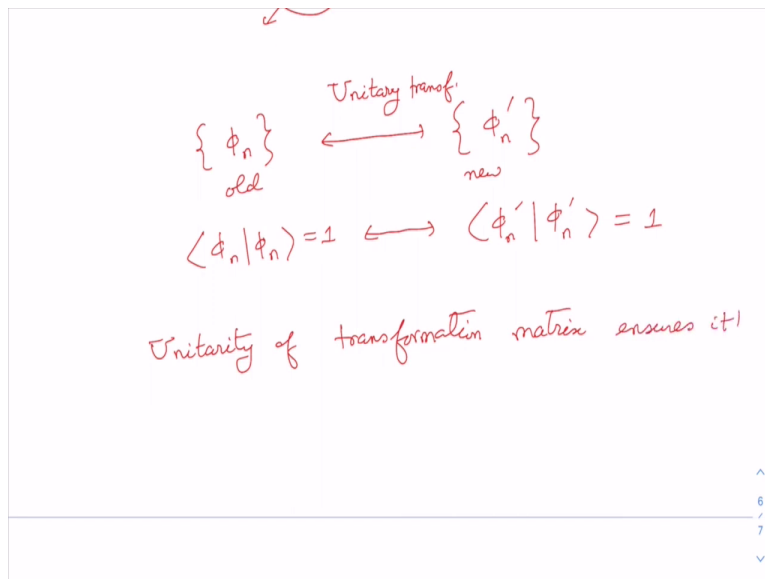 Unitary transf.
{ϕₙ} ⟷ {ϕₙ′}
old new
⟨ϕₙ|ϕₙ⟩ = 1 ⟷ ⟨ϕₙ′|ϕₙ′⟩ = 1
Unitarity of transformation matrix ensures it!
6
/
7